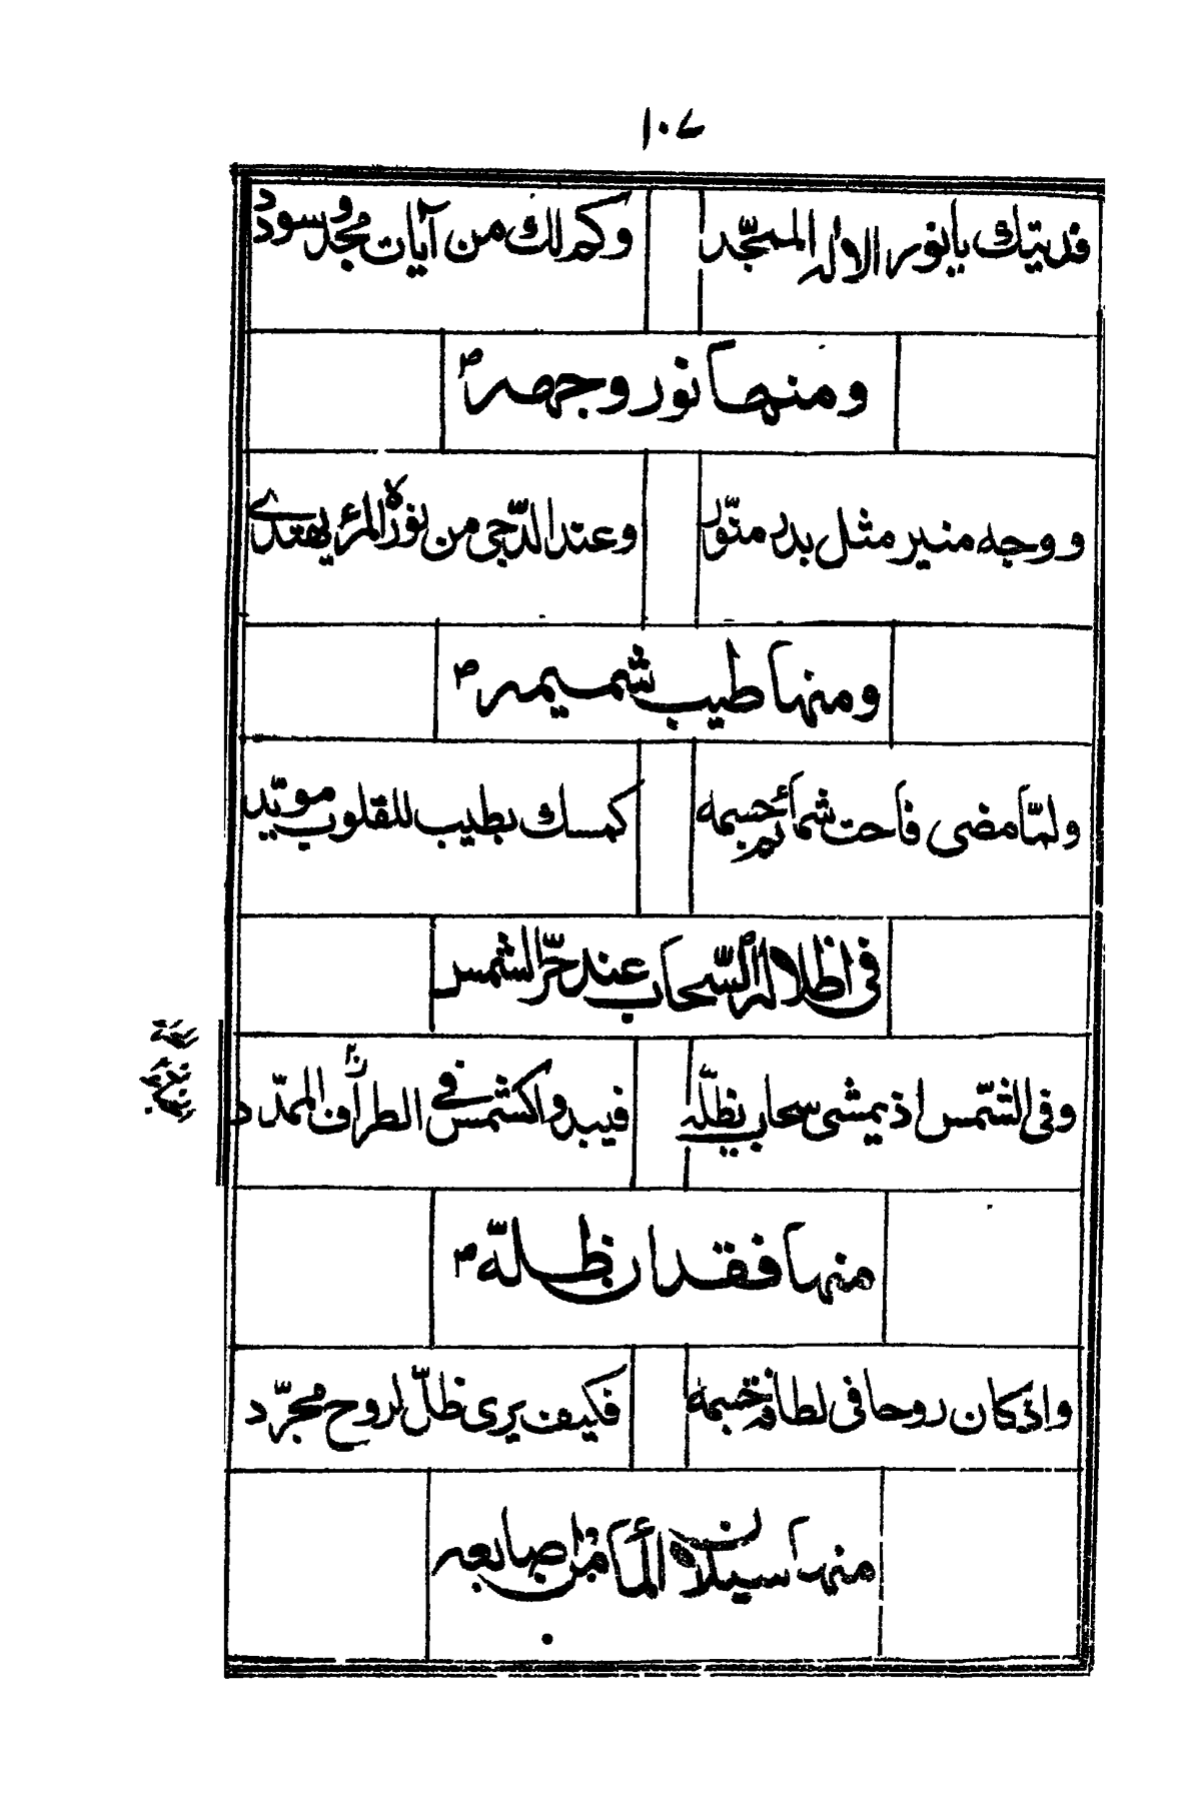 ١٠٧
فديتك يا نور الاله الممجّد وكم لك من آيات مجد وسودد
ومنها نور وجهه ص
ووجه منير مثل بدر منوّر وعند الدّجى من نوره المرء يهتدے
ومنها طيب شميمه ص
ولمّا مضى فاحت شمائم جسمه كمسك بطيب للقلوب مويّد
فى اظلاله السّحاب عند حرّ الشمس
وفى الشّمس اذ يمشى سحاب يظلّه فيبدو اكشمس فے الطراف الممدّد
منها فقدان ظلّه ص
واذ كان روحا فى لطافة جسمه فكيف يرى ظلّ لروح مجرّد
منها سيلان المأ من اصابعه